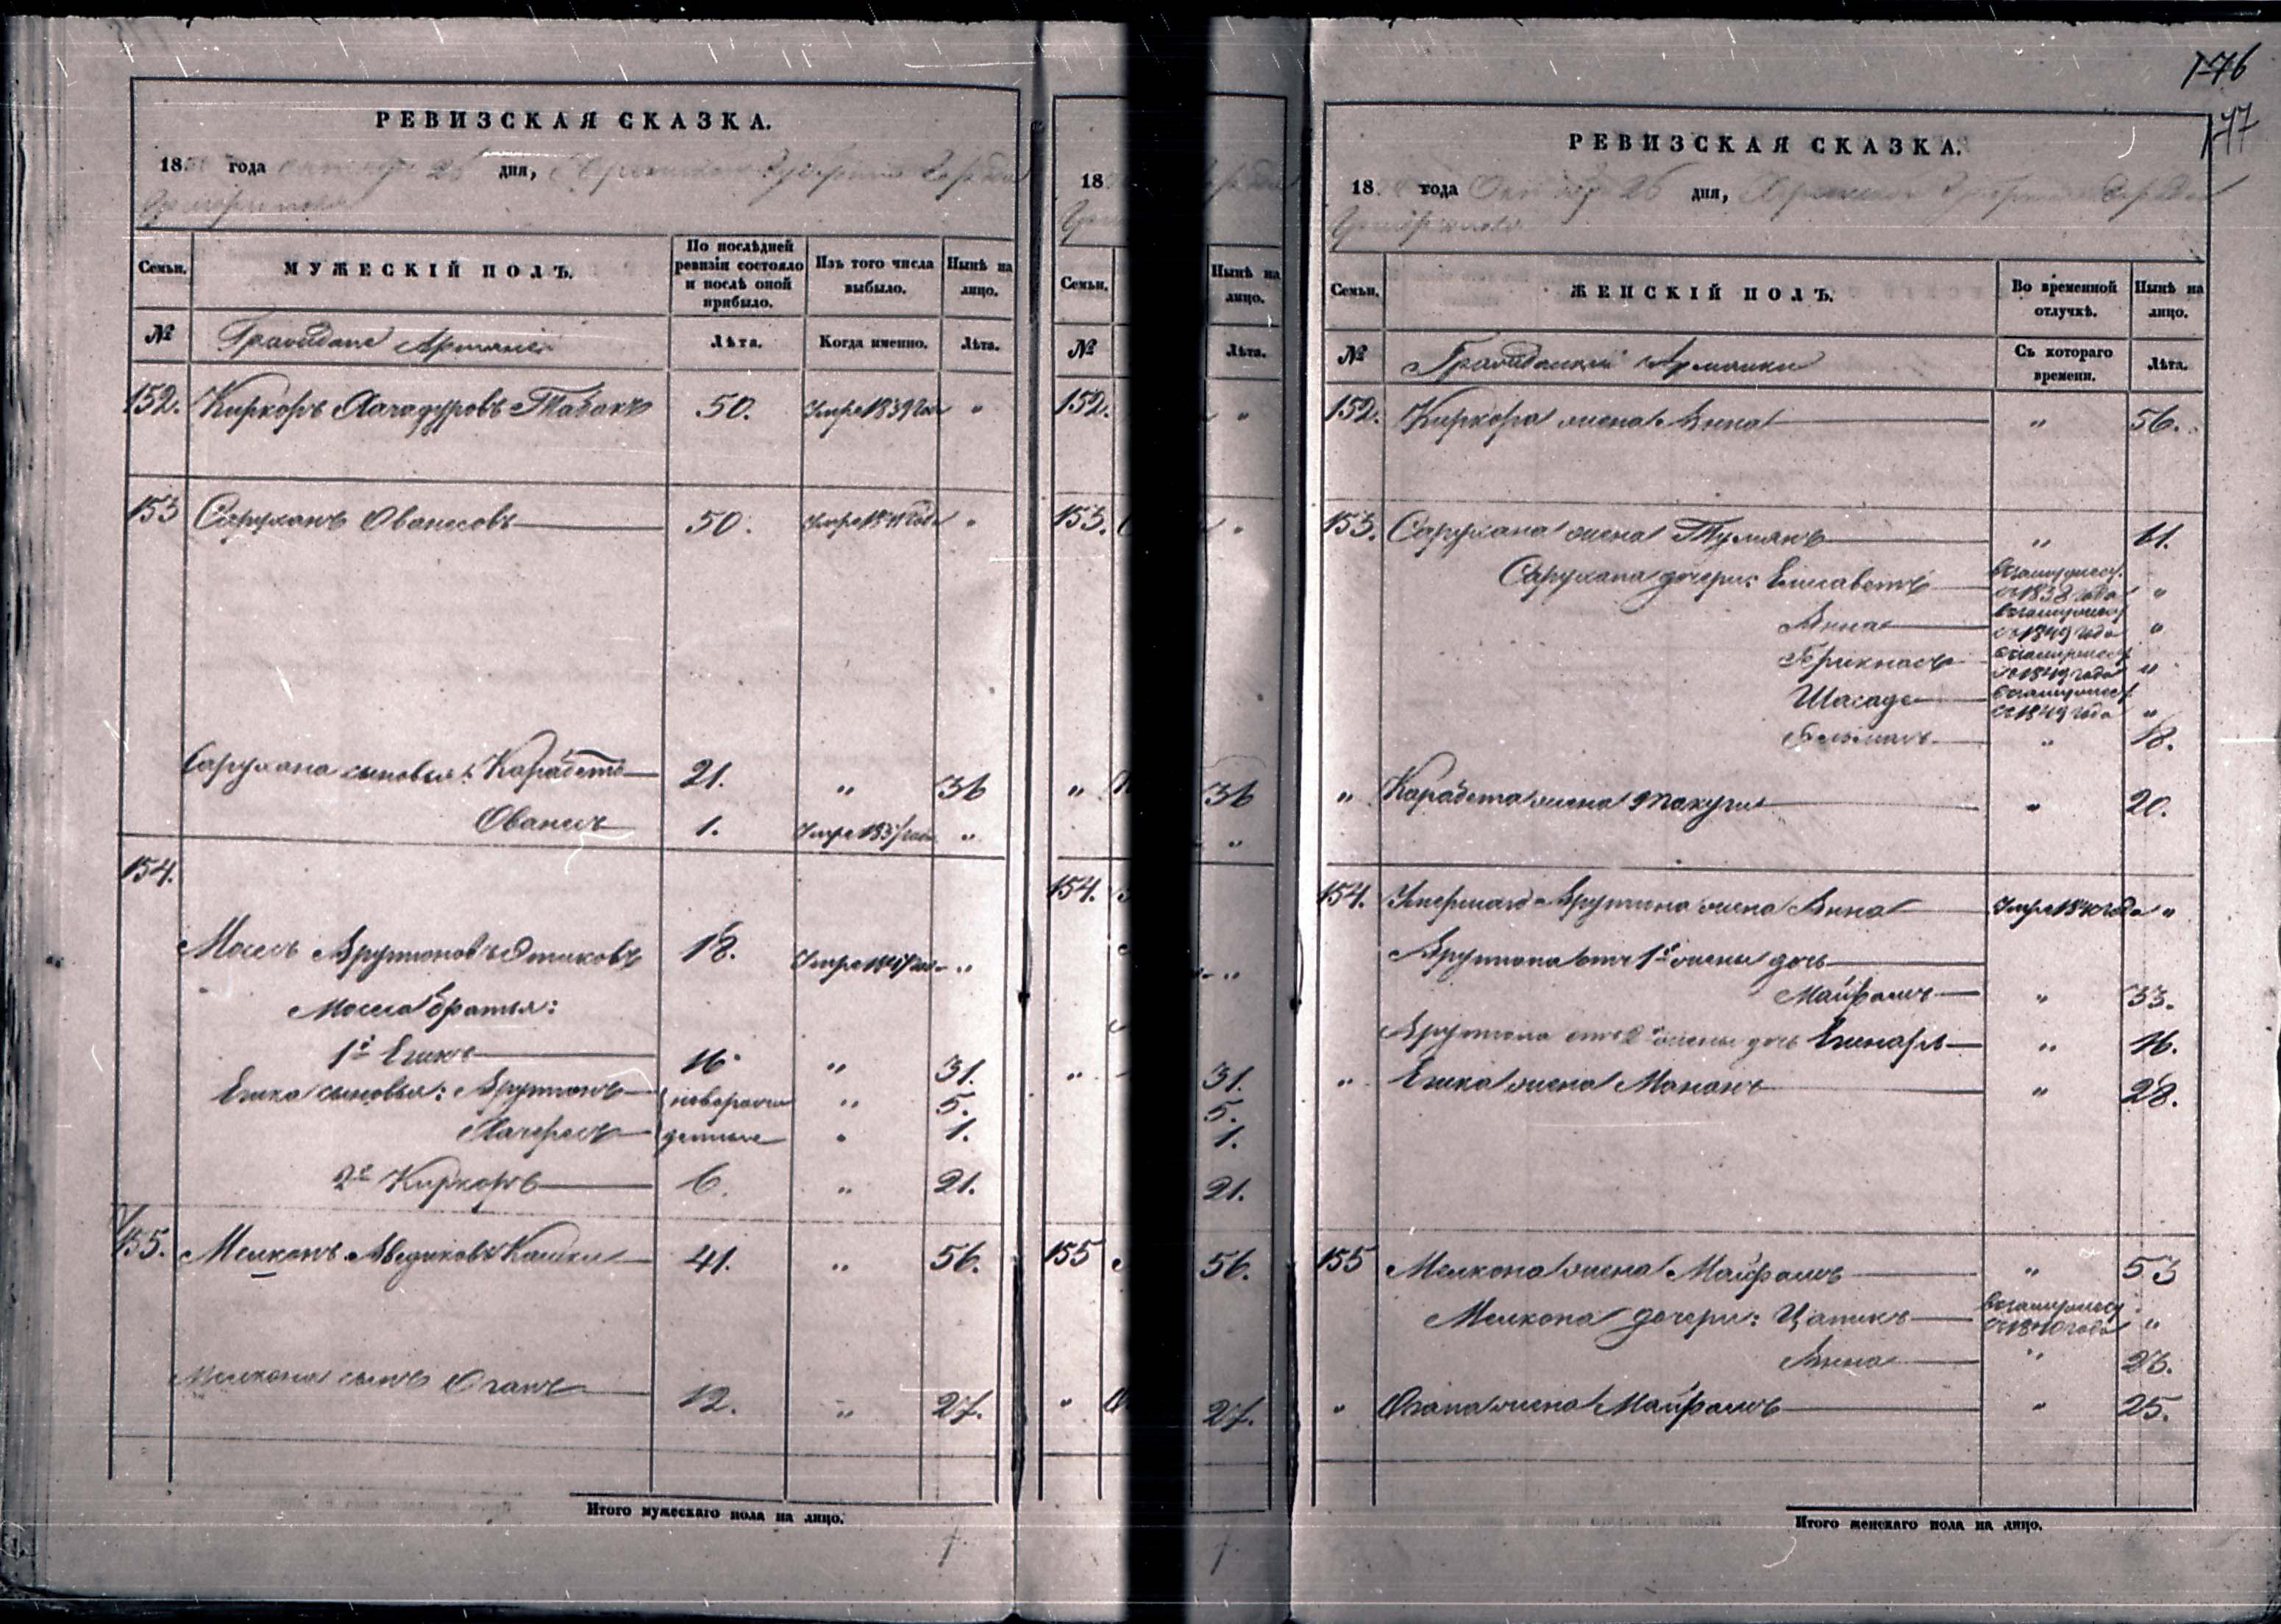 РЕВИЗСКАЯ СКАЗКА.
1850 года октября 26 дня, Херсонской Губерніи Города
Григоріополя
Семьи. МУЖЕСКІЙ ПОЛЪ. По послѣдней ревизіи состояло и послѣ оной прибыло. Изъ того числа выбыло. Нынѣ на лицо.
№ Граждане Армяне Лѣта. Когда именно. Лѣта.
152. Киркоръ Хачадуровъ Табакъ 50. Умре 1839 года "
153 Саруханъ Ованесовъ 50. Умре "
Сарухана сыновья: Карабетъ 21. " 36
Ованесъ 1. Умре "
154.
Мосесъ Арутюновъ 18. Умре "
Мосеса братья:
1й Егикъ 16 " 31.
Егика сыновья: Арутюнъ новорож " 5.
Хачересъ денные " 1.
2й Киркоръ 6. " 21.
155. Мелконъ Аведиковъ Кашки 41. " 56.
Мелкона сынъ Оганъ 12. " 27.
Итого мужескаго пола на лицо.
18
Семьи. Нынѣ на лицо.
№ Лѣта.
152. "
153. "
" 36
"
154.
"
" 31.
5.
1.
21.
155 56.
" 27.
176
177
РЕВИЗСКАЯ СКАЗКА.
18 года Октября 26 дня, Херсонской Губерніи Города
Григоріополя
Семьи. ЖЕНСКІЙ ПОЛЪ. Во временной отлучкѣ. Нынѣ на лицо.
№ Гражданки Армянки Съ котораго времени. Лѣта.
152. Киркора жена Анна " 56.
153. Сарухана жена Тумянъ " 61.
Сарухана дочери: Елисаветъ въ замужест. съ 1838 года "
Анна въ замужест. съ 1849 года "
въ замужест. съ 1849 года "
Шасаде въ замужест. съ 1849 года "
" 18.
" Карабета жена Такуги " 20.
154. Умершаго Арутюна жена Анна Умре 1840 года "
Арутюна отъ 1й жены дочь
Майрамъ " 33.
Арутюна отъ 2й жены дочь Егинаръ " 16.
" Егика жена Мананъ " 28.
155 Мелкона жена Майрамъ " 53
Мелкона дочери: Цапикъ въ замужест. съ 1840 года "
Анна " 23.
" Огана жена Майрамъ " 25.
Итого женскаго пола на лицо.